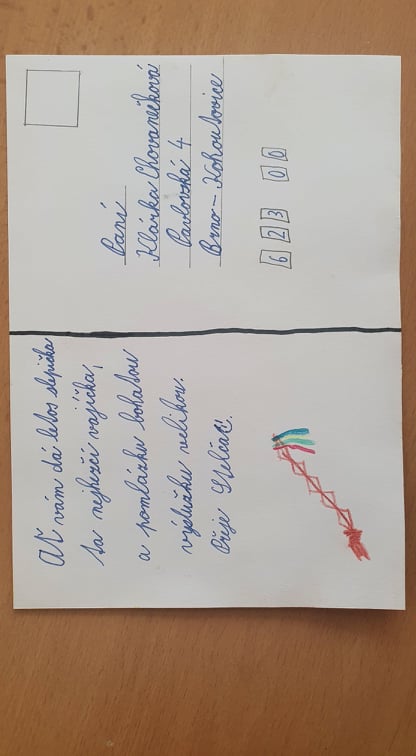 Ať vám dá letos slepička
ta nejhezčí vajíčka,
a pomlázku bohatou
výslužku velikou.
Přeje Stelčac.
Paní
Klárka Chovanečková
Pavlovská 4
Brno – Kohoutovice
623 00